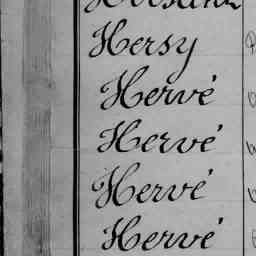 Hersy
Hervé
Hervé
Hervé
Hervé